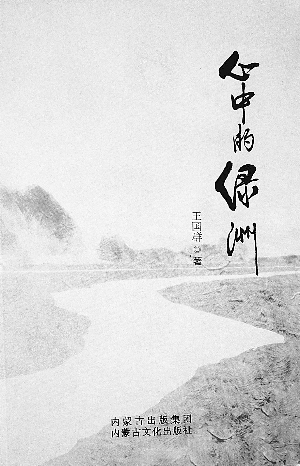 心中的绿洲
王国群 著
内蒙古出版集团
内蒙古文化出版社